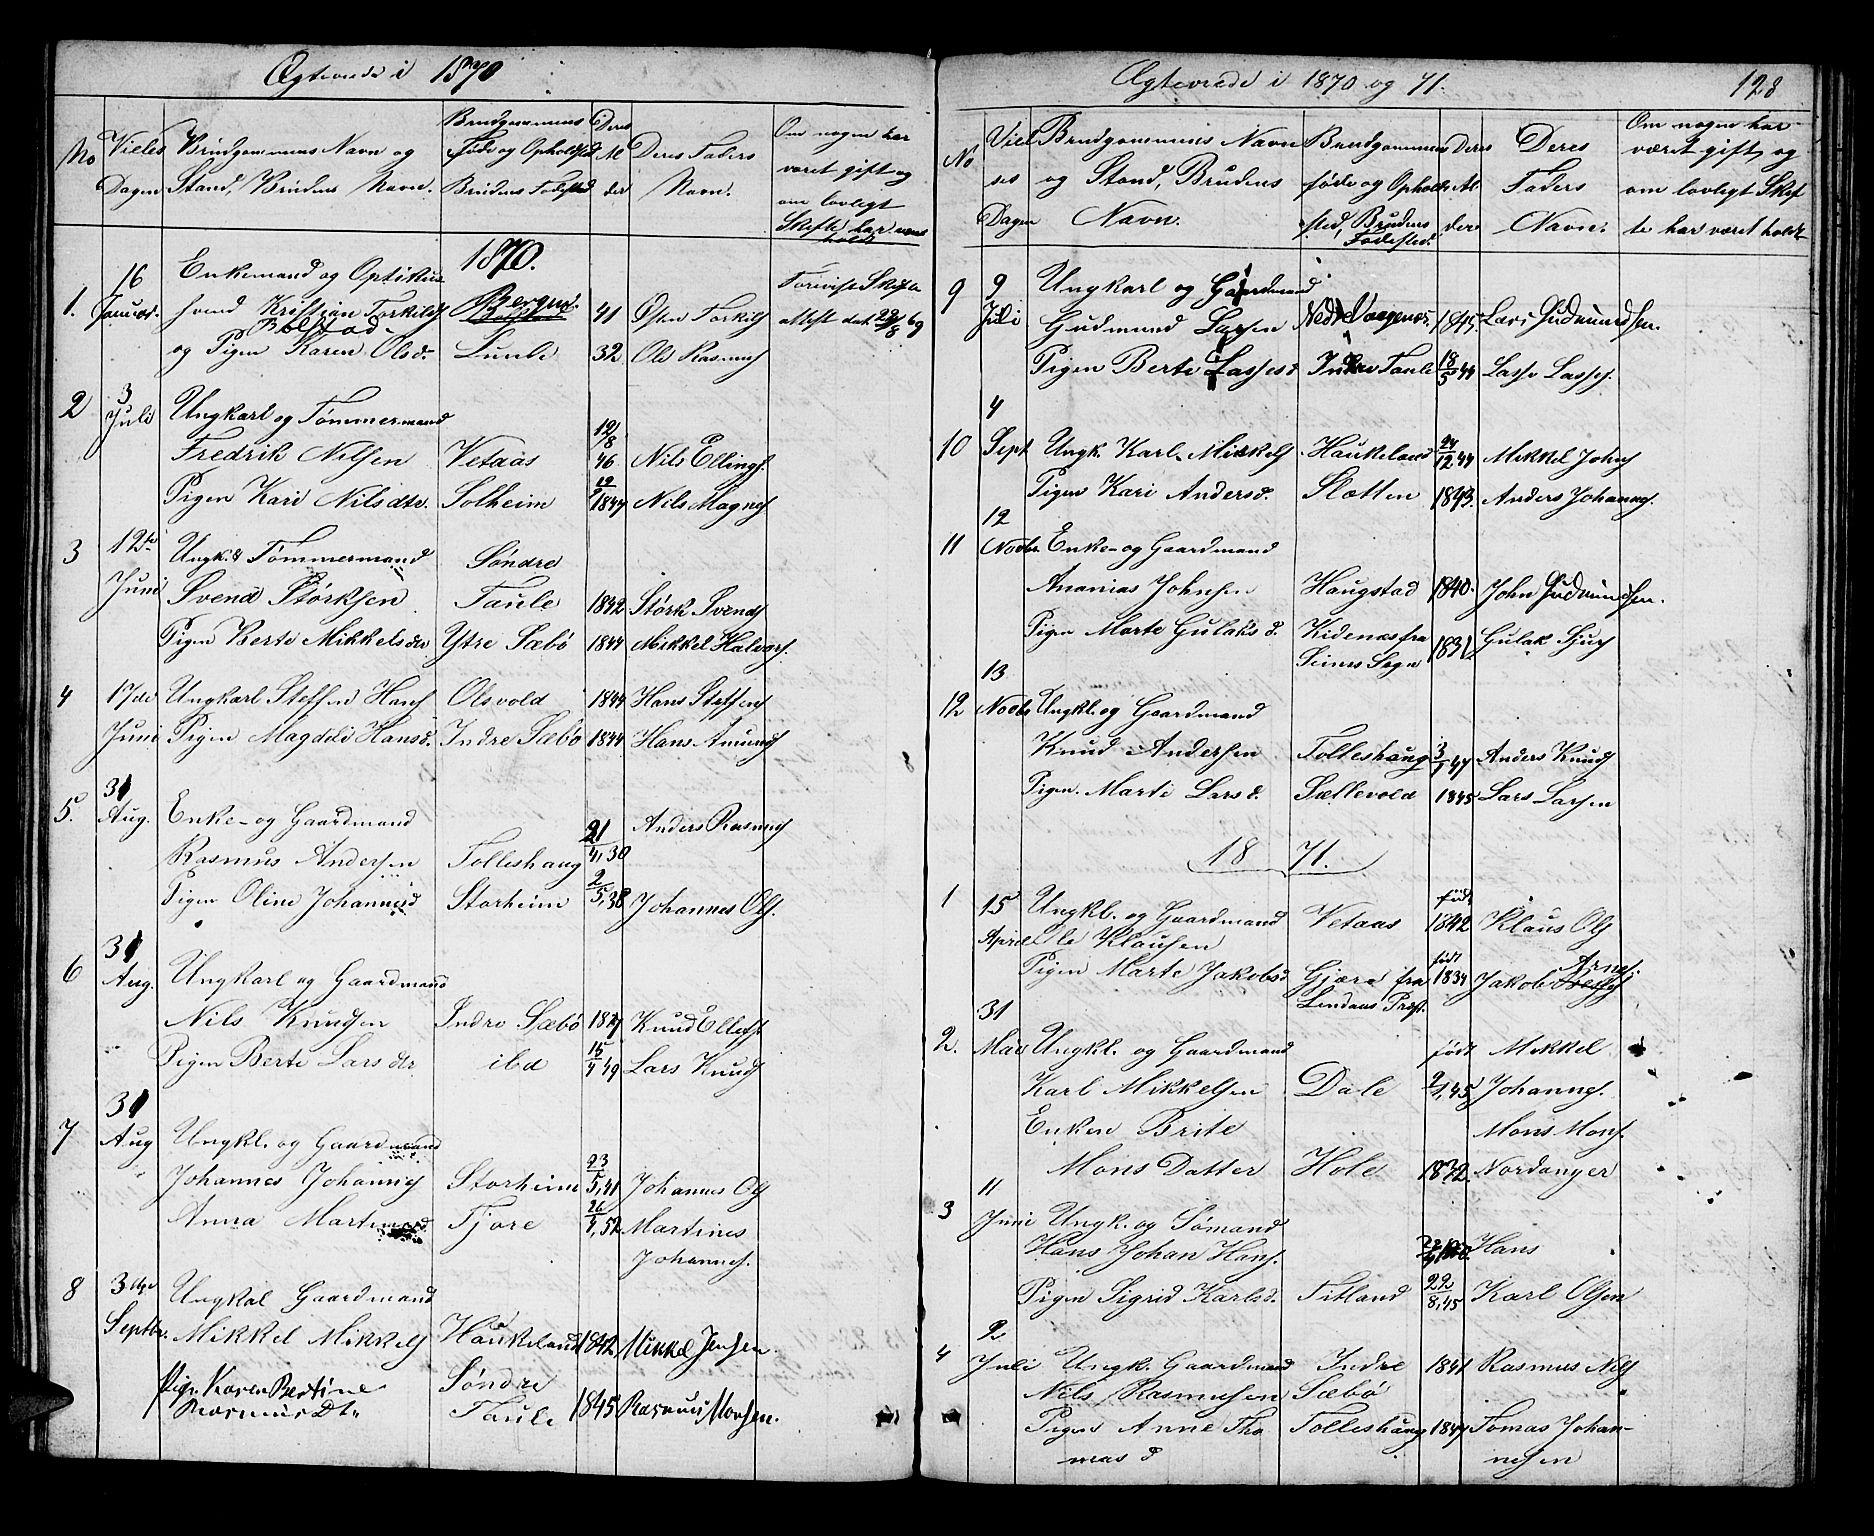 Ægteviede i 1870
No
Vielses Dagen
Brudgommens Navn og Stand, Brudens Navn.
Brudgommens Føde og Opholdssted Brudens Fødested
Deres Alder
Deres Faders Navn.
Om nogen har været gift og om lovligt Skifte har været holdt
1870.
1. 16 Januar. Enkemand og Optikus
Kristian Torkilds Bergen. 41 Østen Torkils
Bolstad
og Pigen Karen Olsd. Taule 32 Ole Rasmus
Forevist Skifte attest dat. 28/8 69
2 3 Juli Ungkarl og Tømmermand
Fredrik Nilsen Vetaas 12/8 46 Nils Ellings.
Pigen Kari Nilsdtr. Solheim 1847 Nils Magnes
3 12te Juni Ungk. & Tømmermand Søndre
Svend Størksen Taule 1842 Størk Svends
Pigen Berte Mikkelsdtr Ytre Sæbö 1844 Mikkel Halvors.
4 17de Ungkarl Steffen Hans Olsvold 1844 Hans Steffens
Juni Pigen Magdeli Hansd. Indre Sæbö 1844 Hans Amunds
5. 31 Aug. Enke- og Gaardmand
Rasmus Andersen Tolleshaug 21/4, 30 Anders Rasmus
Pigen Oline Johannesd Storheim 2/5, 38 Johannes Ols.
6 31 Aug. Ungkarl og Gaardmand
Nils Knudsen Indre Sæbö 1827 Knud Ellefs.
Pigen Berte Larsdtr ibd 15/4 49 Lars Knuds
7 31 Aug Ungkl. og Gaardmand
Johannes Johannes Storheim 23/5, 41 Johannes Ols
Anna Martinusd Fjore 26/4, 52 Martinus
Johannes.
8 3die Septbr. Ungkal Gaardmand
Mikkel Mikkels Haukeland 1842 Mikkel Jensen.
Pige Karen Bertine Søndre
Rasmus Dt. Taule 1845 Rasmus Monsen.
Ægteviede i 1870 og 71.
128
No
Vielses Dagen
Brudgommens Navn og Stand, Brudens Navn.
Brudgommens føde og Opholdssted, Brudens Fødested.
Deres Alder
Deres Faders Navn.
Om nogen har været gift, og om lovligt Skifte har været holdt
9 9 Juli Ungkarl og Gaardmand
Gudmund Larsen Nedre Vaagenes 1845 Lars Gudmundsen.
Pigen Berte Lasses d Indre Taule 18/5 44 Lasse Lasses.
10 4 Sept Ungk. Karl Mikkels Haukeland 24/12 44 Mikkel Johns
Pigen Kari Andersd. Slætten 1843. Anders Johannes.
11 12 Novbr. Enke- og Gaardmand
Ananias Johnsen Haugstad 1840. John Gudmundsen.
Pigen Marte Gulaks d. Kidenæs fra 1831 Gulak Sjurs
Seims Sogn
12 13 Novbr Ungkl. og Gaardmand
Knud Andersen Tolleshaug 3/1 47 Anders Knuds
Pigen Marte Larsd. Sællevold 1845 Lars Larsen
1871.
1 15 April Ungkl. og Gaardmand Vetaas født 1842 Klaus Ols
Ole Klausen
Pigen Marte Jakobsd. Gjære fra født 1834 Jakob Arnes.
Lindaas Præst.
2. 31 Mai Ungkl. og Gaardmand født Mikkel
Karl Mikkelsen Dale 9/1, 45 Johannes.
Enken Brite Mons Mons.
Mons Datter Hole 1832 Nordanger
3 11 Juni Ungk. og Sømand
Hans Johan Hans. Hans
Pigen Sigrid Karlsd. Titland 22/8, 45 Karl Olsen
4 2 Juli Ungk. Gaardmand Indre 1841 Rasmus Nils
Nils Rasmussen Sæbö
Pigen Anne Tho Tolleshaug 1847 Tomas Johan-
mas d nesen